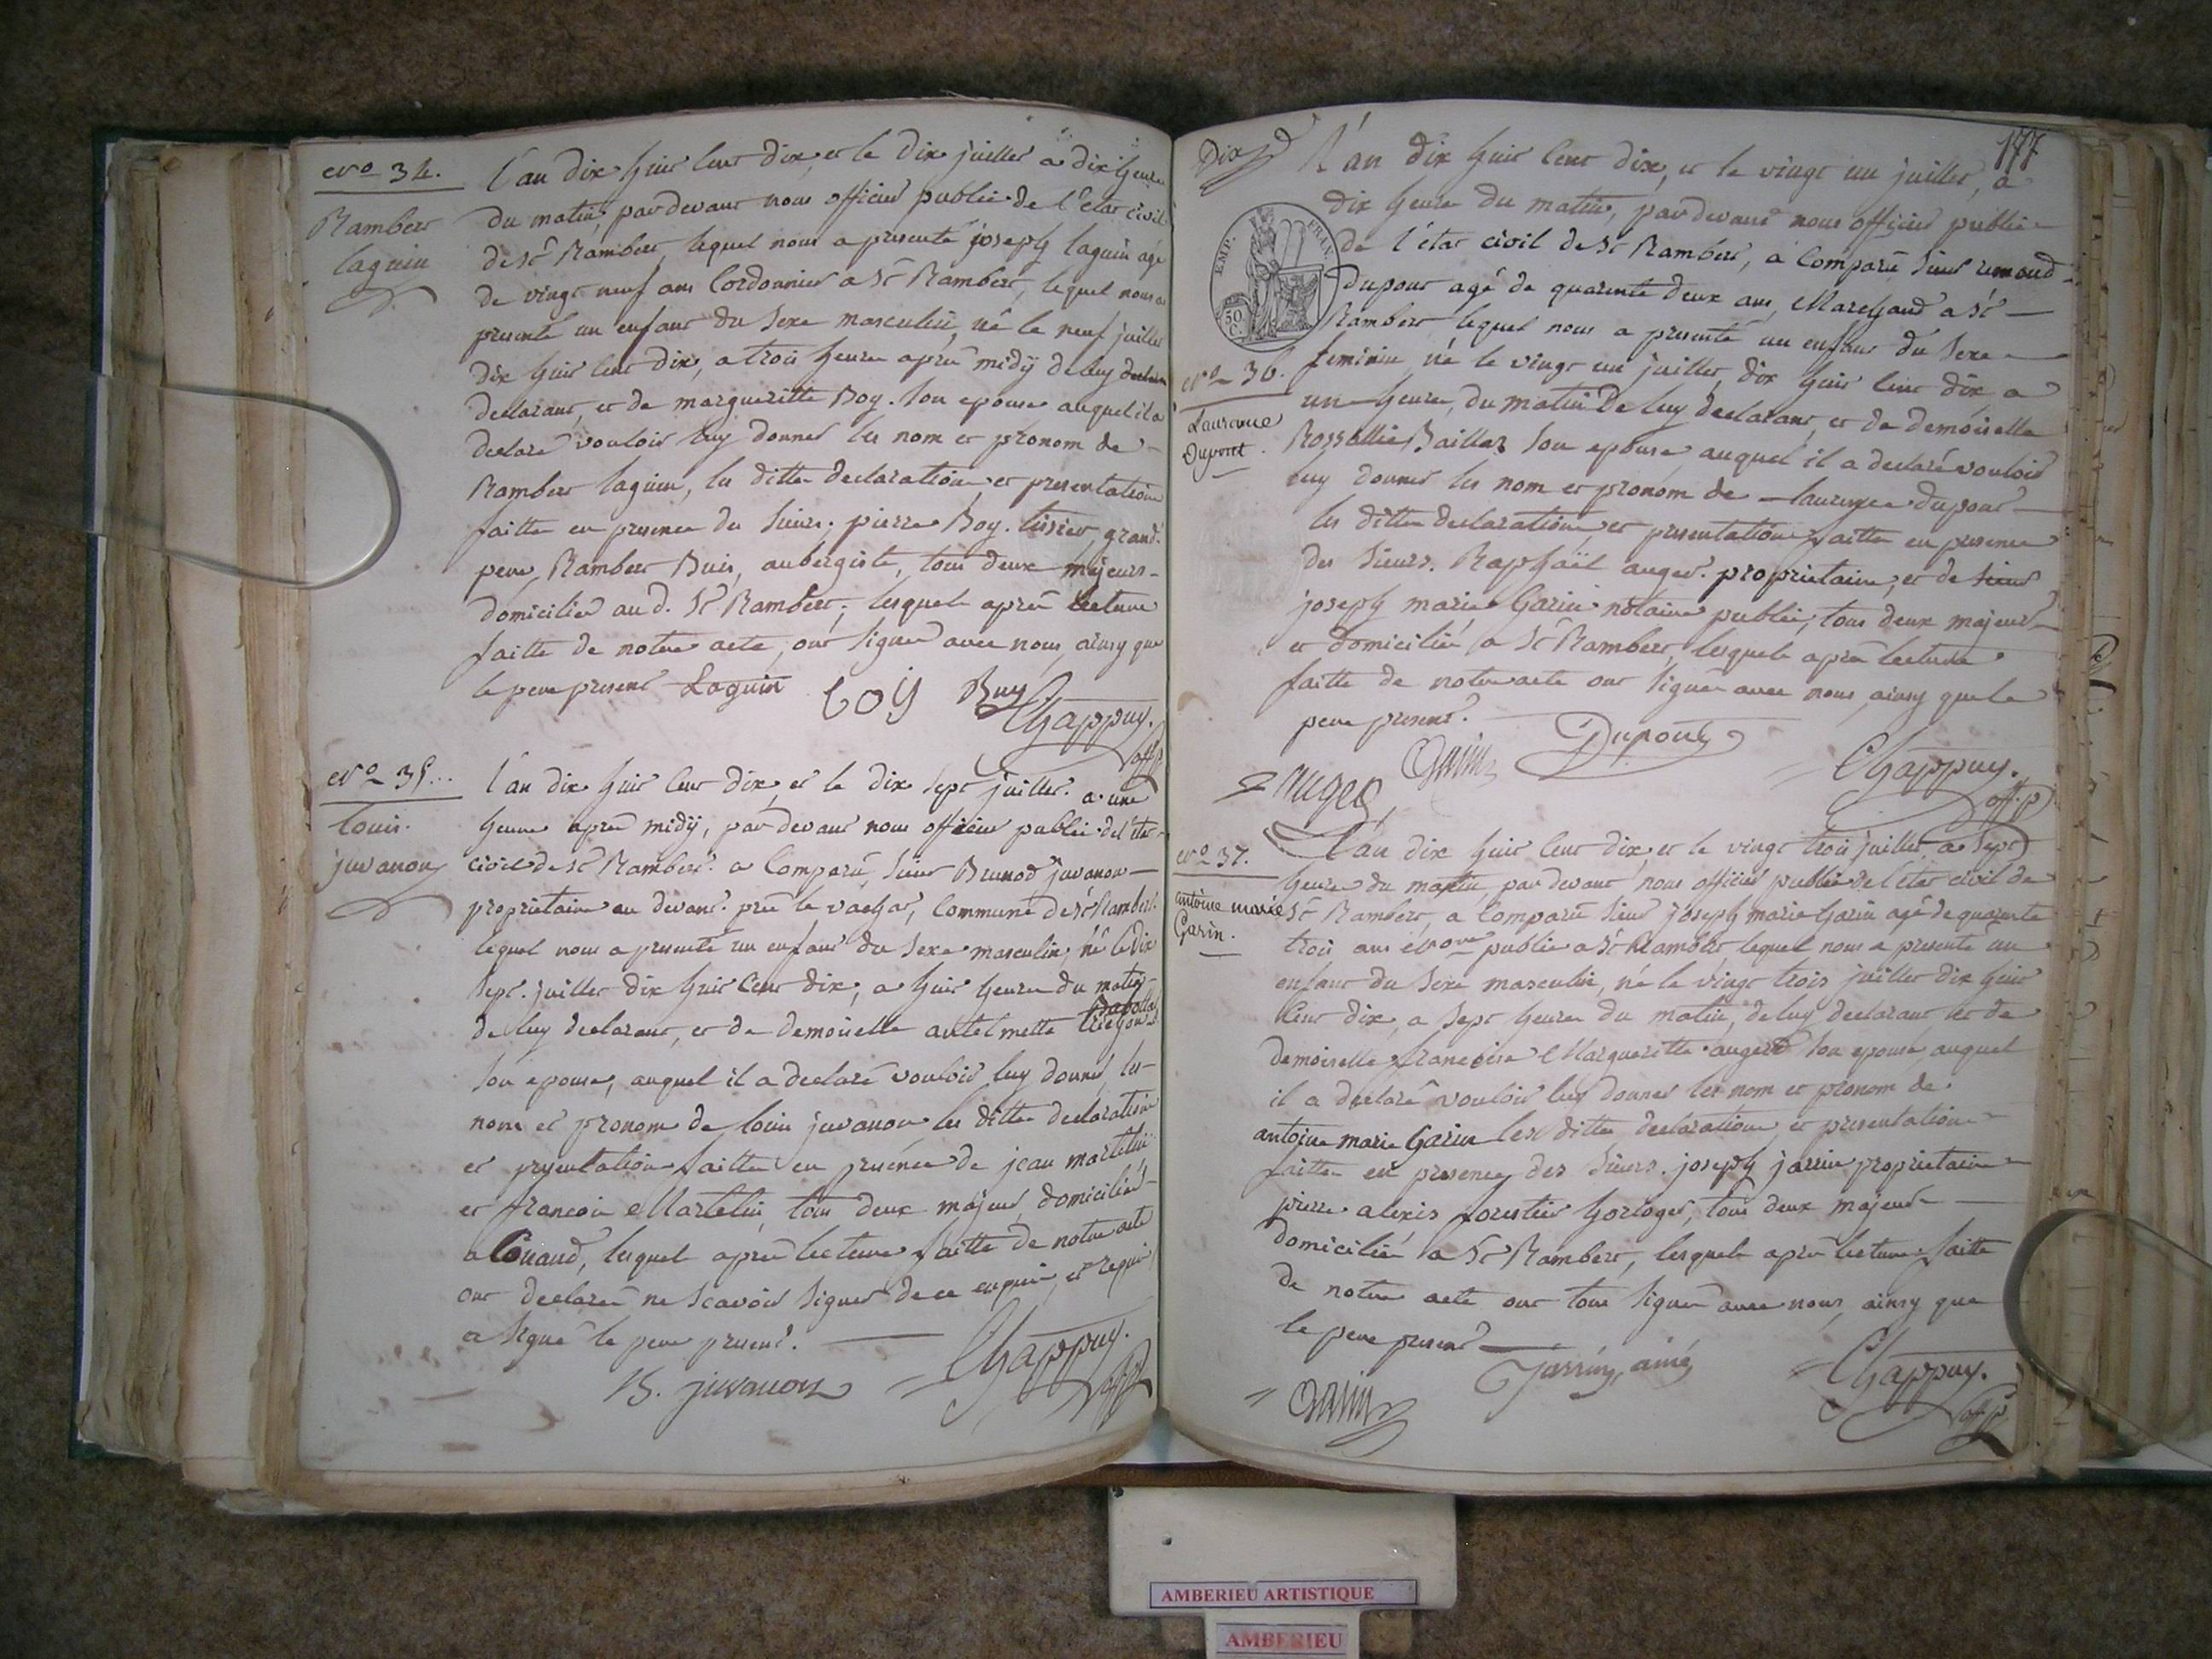 No 34.
Rambert
laguin
L'an dix huit cent dix, et le dix juillet a dix heure
du matin, pardevant nous officier public de l'état civil
de St Rambert, lequel nous a presenté joseph laguin agé
de vingt neuf ans Cordonnier a St Rambert, lequel nous a
presenté un enfant du sexe masculin, né le neuf juillet
dix huit cent dix, a trois heure après midÿ de luy
declarant, et de margueritte Boy. son epouse auquel il a
declaré vouloir luy donner les nom et pronom de
Rambert laguin, les ditte declaration et presentation
faitte en presence du sieurs. pierre Boy. tissier, grand
pere, Rambert Buis, aubergiste, tous deux majeurs
domicilié aud. St Rambert, lesquels après lecture
faitte de notre acte, ont signé avec nous, ainsy que
le pere present Laguin boy Buy
Chappuy.
off. p
No 35...
Louis.
juvanon
L'an dix huit cent dix, et le dix sept juillet. a une
heure après midÿ, pardevant nous officier public de l'etat
civil de St Rambert. a Comparu, sieur Brunod juvanon
proprietaire au devant. près le vachat, Commune de St Rambert.
lequel nous a presenté un enfant du sexe masculin, né le dix
sept. juillet dix huit cent dix, a huit heure du matin
de luy declarant, et de demoiselle antelmette
son epouse, auquel il a declaré vouloir luy donner les
nom et pronom de louis juvanon les ditte declaration
et presentation faitte en presence de jean martelin
et francois Martelin, tous deux majeur, domicilié
a Conand, lesquel après lecture faitte de notre acte
ont declaré ne scavoir signer de ce enquis, et requis
a signé le pere present.
B. juvanon
Chappuy.
off. p
177
Dix
EMP. FRAN.
50 C.
L'an dix huit cent dix, et le vingt un juillet, a
dix heure du matin, pardevant nous officier public
de l'état civil de St Rambert, a Comparu sieur remond
dupont agé de quarente deux ans, Marchand a St
Rambert lequel nous a presenté un enfant du sexe
No 36.
Laurence
Dupont.
feminin, né le vingt un juillet, dix huit cent dix, a
un heure, du matin de luy declarant, et de demoiselle
Rozallie Baillat son epouse auquel il a declaré vouloir
luy donner les nom et pronom de laurence dupont
les ditte declaration, et presentation faitte en presence
des sieurs. Raphaïl auger. proprietaire, et de sieur
joseph marie Garin notaire public, tous deux majeur
et domicilié a St Rambert, lesquels après lecture
faitte de notre acte ont signé avec nous, ainsy que le
pere present.
Auger Garin Dupont Chappuy.
off. p
No 37.
antoine marie
Garin.
L'an dix huit cent dix, et le vingt trois juillet a sept
heure du matin, pardevant nous officier public de l'état civil de
St Rambert, a Comparu sieur joseph marie Garin agé de quarente
trois ans public a St Rambert lequel nous a presenté un
enfant du sexe masculin, né le vingt trois juillet dix huit
cent dix, a sept heure du matin, de luy declarant et de
demoiselle francoise Margueritte auger son epouse, auquel
il a declaré vouloir luy donner les nom et pronom de
antoine marie Garin les ditte declaration, et presentation
faitte en presence des sieurs. joseph jarrin proprietaire
pierre alexis forestier horloger, tous deux majeur
domicilié a St Rambert, lesquels après lecture faitte
de notre acte ont tous signé avec nous, ainsy que
le pere present
Garin Jarrin, ainé Chappuy.
off. p.
AMBERIEU ARTISTIQUE
AMBERIEU